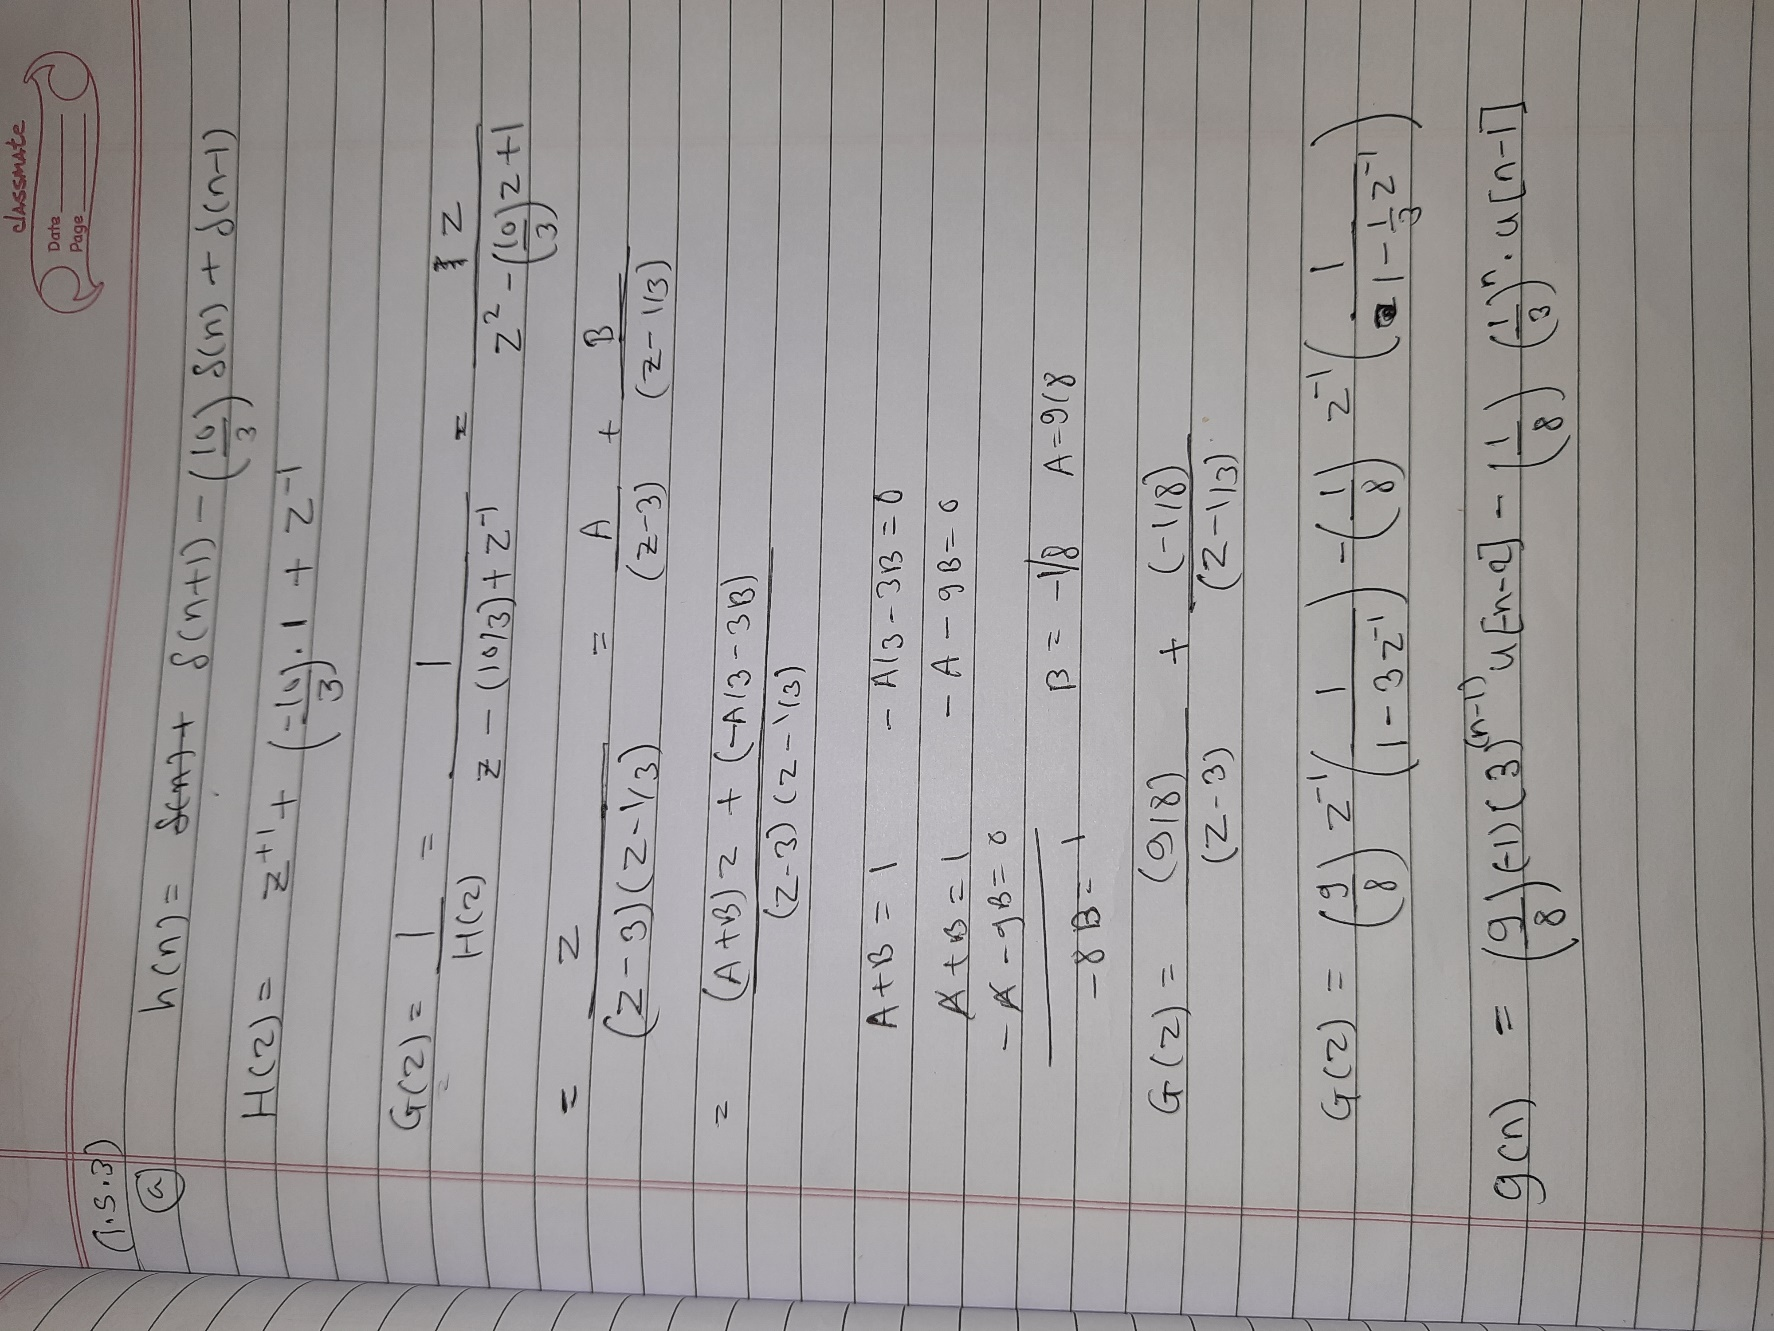 classmate
Date
Page
(1.5.3)
(a) h(n) = δ(n+1) - (10/3) δ(n) + δ(n-1)
H(z) = z^{+1} + (-10/3) . 1 + z^{-1}
G(z) = 1/H(z) = 1/(z - (10/3) + z^{-1}) = z/(z^2 - (10/3)z + 1)
= z/((z-3)(z-1/3)) = A/(z-3) + B/(z-1/3)
= ((A+B)z + (-A/3 - 3B))/((z-3)(z-1/3))
A+B = 1 - A/3 - 3B = 0
A+B = 1 - A - 9B = 0
-A - 9B = 0
-8B = 1 B = -1/8 A = 9/8
G(z) = (9/8)/(z-3) + (-1/8)/(z-1/3)
G(z) = (9/8) z^{-1} (1/(1-3z^{-1})) - (1/8) z^{-1} (1/(1-1/3 z^{-1}))
g(n) = (9/8)(-1)(3)^{(n-1)} u[-n-2] - (1/8) (1/3)^n . u[n-1]